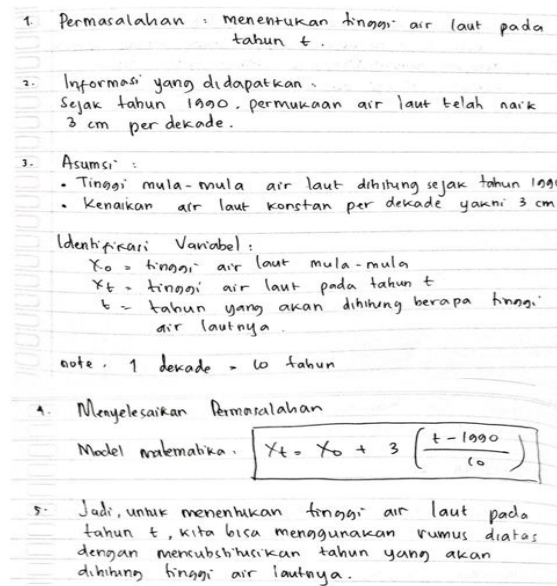 1. Permasalahan : menentukan tinggi air laut pada
tahun t.
2. Informasi yang didapatkan.
Sejak tahun 1990, permukaan air laut telah naik
3 cm per dekade.
3. Asumsi :
• Tinggi mula-mula air laut dihitung sejak tahun 199
• Kenaikan air laut konstan per dekade yakni 3 cm
Identifikasi Variabel :
X₀ = tinggi air laut mula-mula
Xt = tinggi air laut pada tahun t
t = tahun yang akan dihitung berapa tinggi
air lautnya.
note. 1 dekade = 10 tahun
4. Menyelesaikan Permasalahan
Model matematika. Xt = X₀ + 3 ( (t - 1990) / 10 )
5. Jadi, untuk menentukan tinggi air laut pada
tahun t, kita bisa menggunakan rumus diatas
dengan mensubstitusikan tahun yang akan
dihitung tinggi air lautnya.